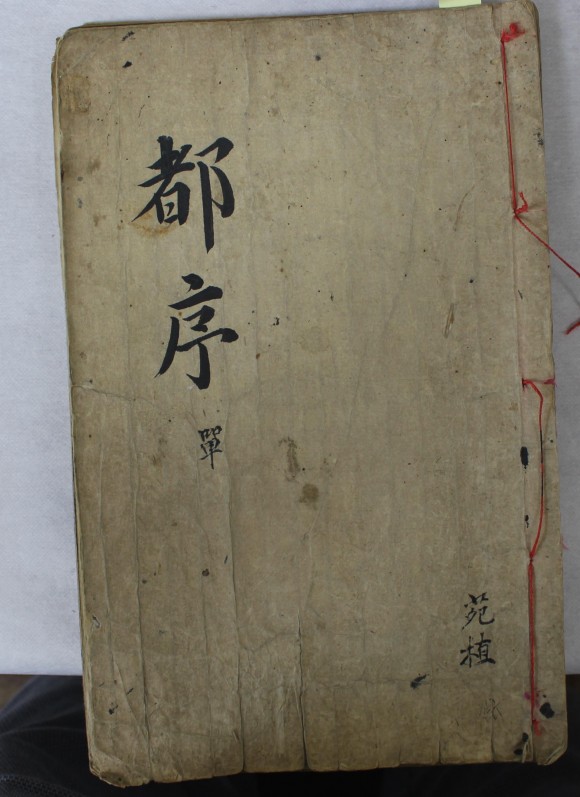 都序
單
苑植